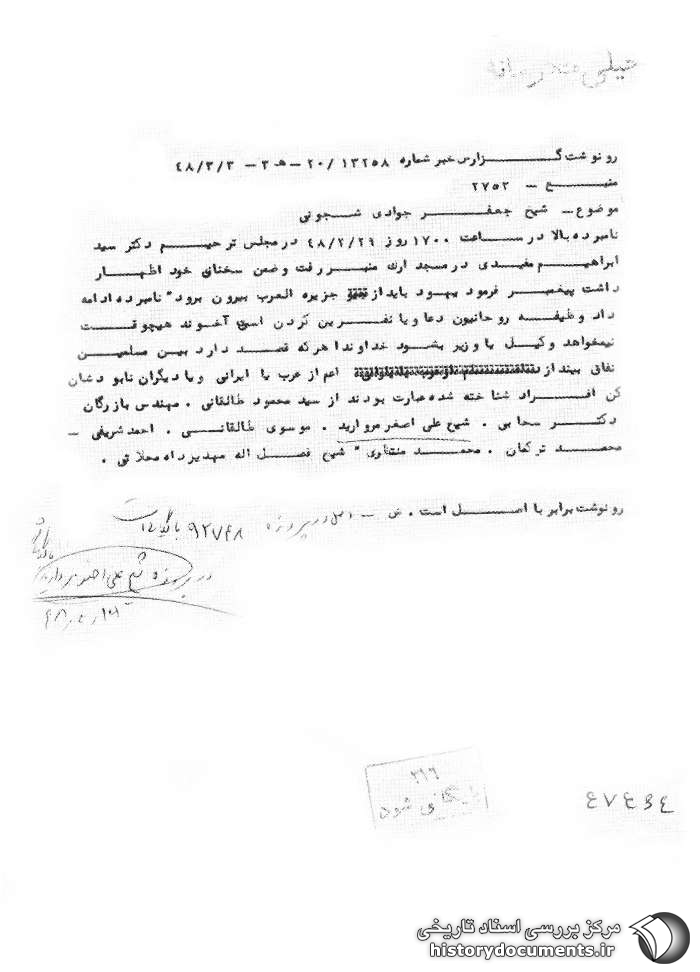 خیلی
رونوشت گزارش خبر شماره ۱۳۲۵۸ /۲۰ – هـ ۳ – ۴۸/۳/۳
منبع – ۲۷۵۲
موضوع – شیخ جعفر جوادی شجونی
نامبرده بالا در ساعت ۱۷۰۰ روز ۴۸/۲/۲۹ در مجلس ترحیم دکتر سید
ابراهیم مفیدی در مسجد ارک منبر رفت و ضمن سخنان خود اظهار
داشت پیغمبر فرمود یهود باید از جزیره العرب بیرون برود" نامبرده ادامه
داد وظیفه روحانیون دعا و یا نفرین کردن است آخوند هیچوقت
نمیخواهد وکیل یا وزیر بشود خداوندا هر که قصد دارد بین مسلمین
نفاق بیندازد اعم از عرب یا ایرانی و یا دیگران نابودشان
کن افراد شناخته شده عبارت بودند از سید محمود طالقانی . مهندس بازرگان
دکتر سحابی . شیخ علی اصغر مروارید . موسوی طالقانی . احمد شریفی –
محمد ترکمان . محمد منتظری " شیخ فضل اله مهدیزاده محلاتی .
رونوشت برابر با اصل است . ض – اصل در پرونده ۹۲۷۴۸ بایگانی
در پرونده شیخ علی اصغر مروارید
۲۱۶
بایگانی شود
مرکز بررسی اسناد تاریخی
historydocuments.ir